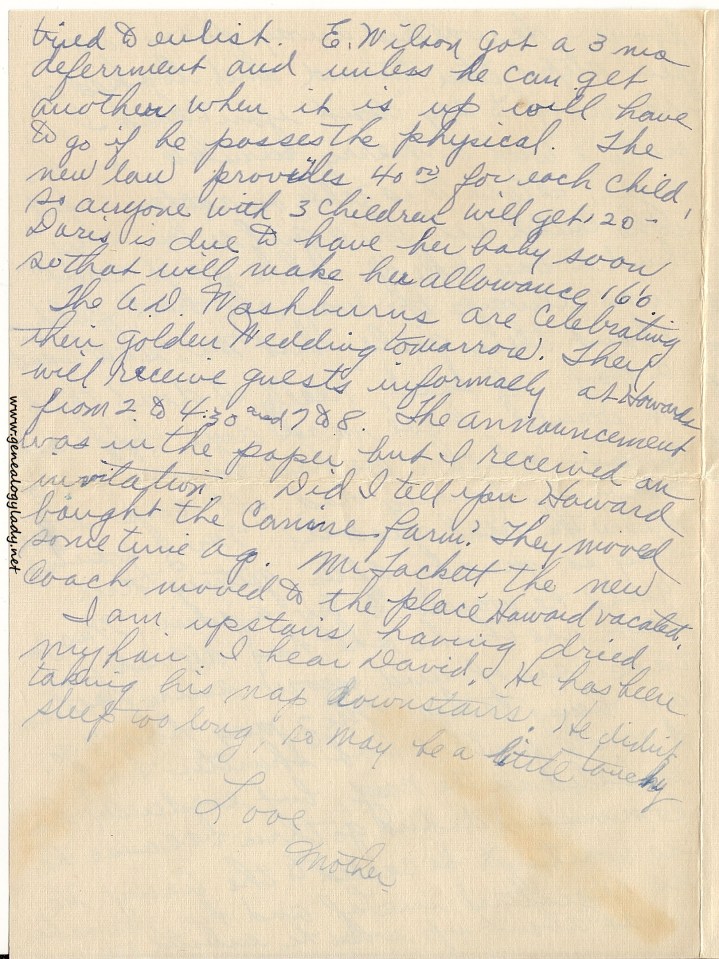 tried to enlist. E. Wilson got a 3 mo
deferrment and unless he can get
another when it is up will have
to go if he passes the physical. The
new law provides 40 00 for each child,
so anyone with 3 children will get 120 -
Doris is due to have her baby soon
so that will make her allowance 160.
The A.D. Washburns are celebrating
their golden Wedding tomarrow. They
will receive guests informally at Howards
from 2 to 4:30 and 7 to 8. The announcement
was in the paper but I received an
invitation. Did I tell you Howard
bought the Canine farm? They moved
some time ago. Mr Tackett the new
coach moved to the place Howard vacated.
I am upstairs having dried
my hair. I hear David. He has been
taking his nap downstairs. He didn't
sleep too long, so may be a little touchy
Love
Mother
www.genealogylady.net